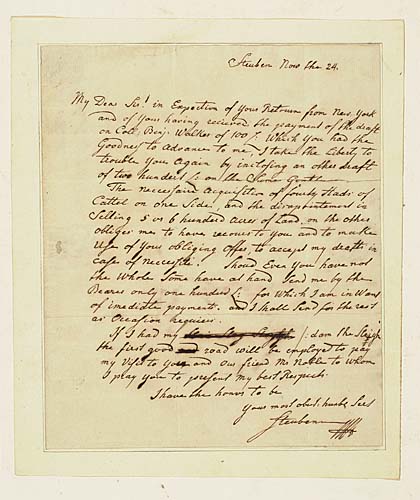 Steuben Nov the 24.
My Dear Sir! in Expection of Your Retourn from New York
and of Your having recieved the payment of the draft
on Coll. Benj. Walker of 100 £. Which You had the
Goodness to advance to me I take the Liberty to
trouble You again by inclosing an other draft
of two hunderd £: on the Same Gentln
The necessaire Acquisition of fourty Heads of
Cattel on one Side, and the disapointement in
Selling 5 or 6 hunderd Acres of Land, on the other
obliges me to have recours to You and to make
Use of Your obliging Offer, to accept my drafts in
Case of necessité. Shoud Even You have not
the Whole Some have at hand Send me by the
Bearer only one hunderd £: for Which I am in Want
of imediate payements. and I shall Send for the rest
as Occasion Requires.
If I had my /: dam the Sleigh
the first good road will be employed to pay
my Visit to You and our friend Mr Noble to Whom
I pray You to present my best Respects.
I have the honor to be
Your most obdt. humble Ser
Steuben